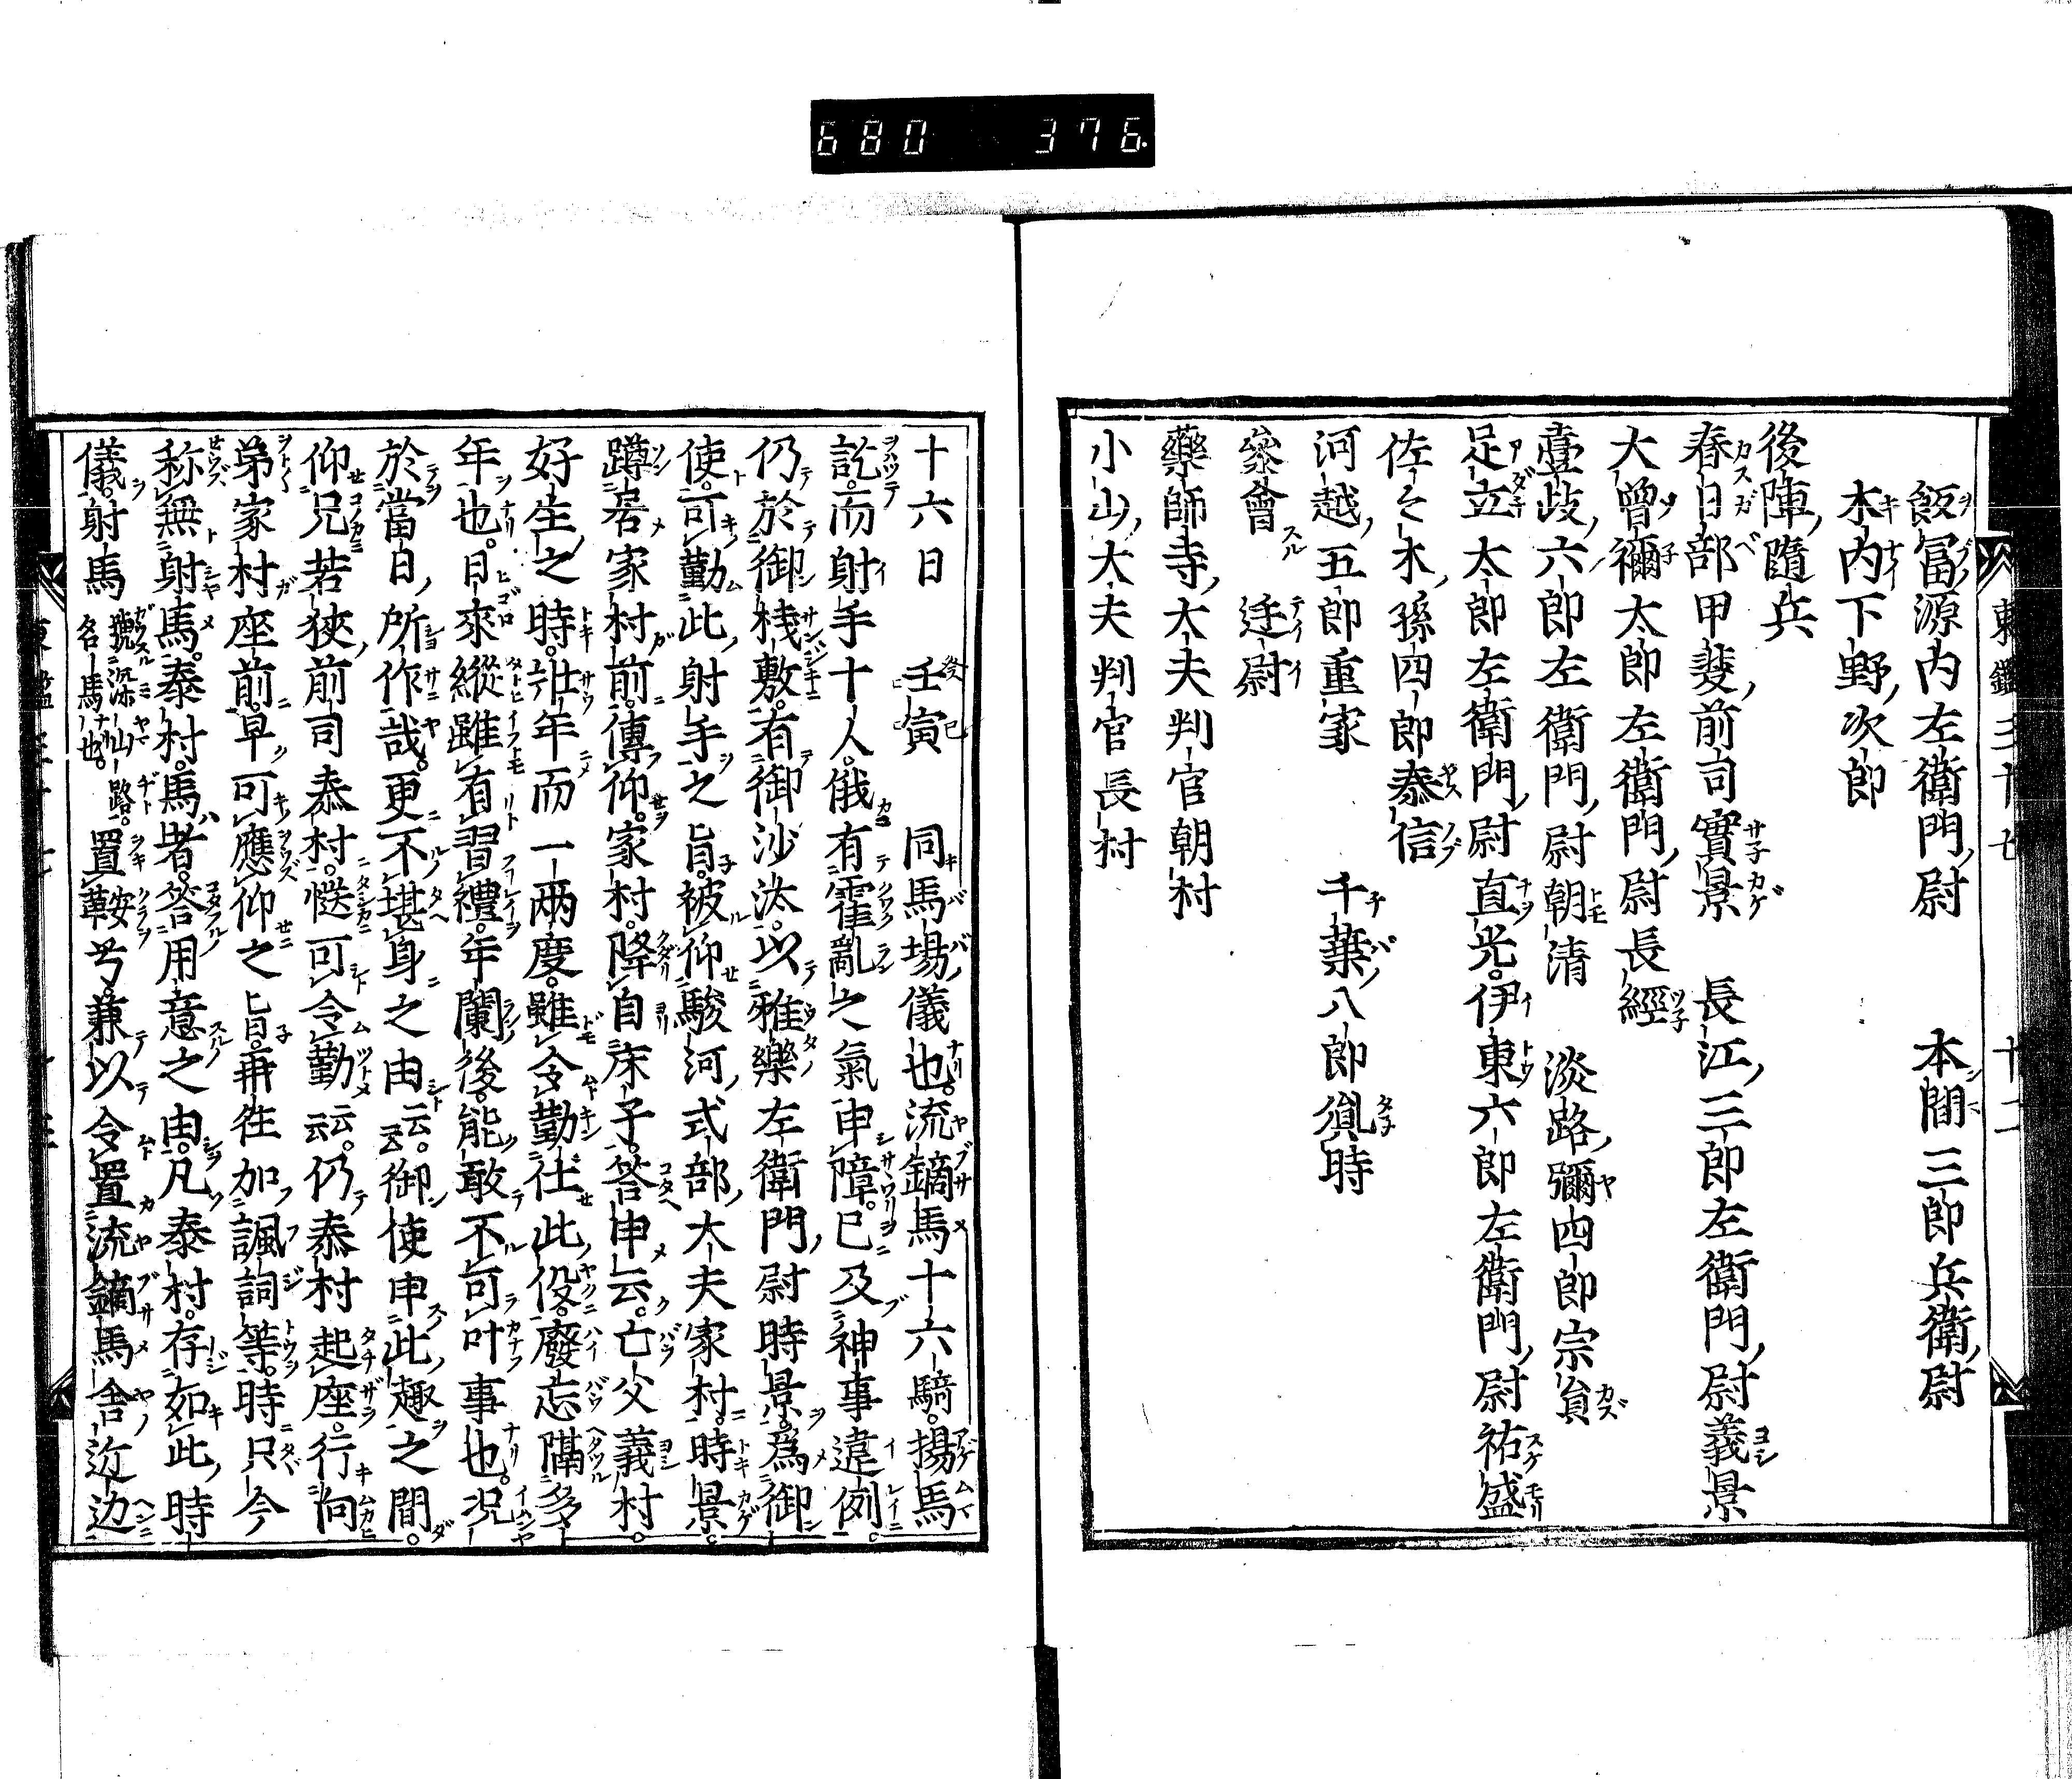 680 376
飯冨源内左衛門尉 本間三郎兵衛尉
木内下野次郎
後陣隨兵
春日部甲斐前司實景 長江三郎左衛門尉義景
大曾禰太郎左衛門尉長經
壹岐六郎左衛門尉朝清 淡路彌四郎宗員
足立太郎左衛門尉直光。伊東六郎左衛門尉祐盛
佐々木孫四郎泰信
河越五郎重家 千葉八郎胤時
參會 廷尉
藥師寺大夫判官朝村
小山大夫判官長村
十六日 壬寅 同馬場儀也。流鏑馬十六騎。揚馬
訖。而射手十人。俄有霍亂之氣申障。已及神事違例。
仍於御棧敷。有御沙汰。以雅樂左衛門尉時景。爲御
使。可勤此射手之旨。被仰駿河式部大夫家村。時景。
蹲居家村前。傳仰。家村。降自床子。答申云。亡父義村。
好生之時。壯年而一兩度。雖令勤仕此役。廢忘隔多
年也。日來縱雖有習禮。年闌後。能敢不可叶事也。況
於當日所作哉。更不堪身之由云云。御使申此趣之間。
仰兄若狹前司泰村。慥可令勤云云。仍泰村起座。行向
弟家村座前。早可應仰之旨。再往加諷詞等。時只今
称無射馬。泰村。馬者。答用意之由。凡泰村。存如此時
儀。射馬 號深山路。名馬也。 置鞍兮。兼以令置流鏑馬舎近边